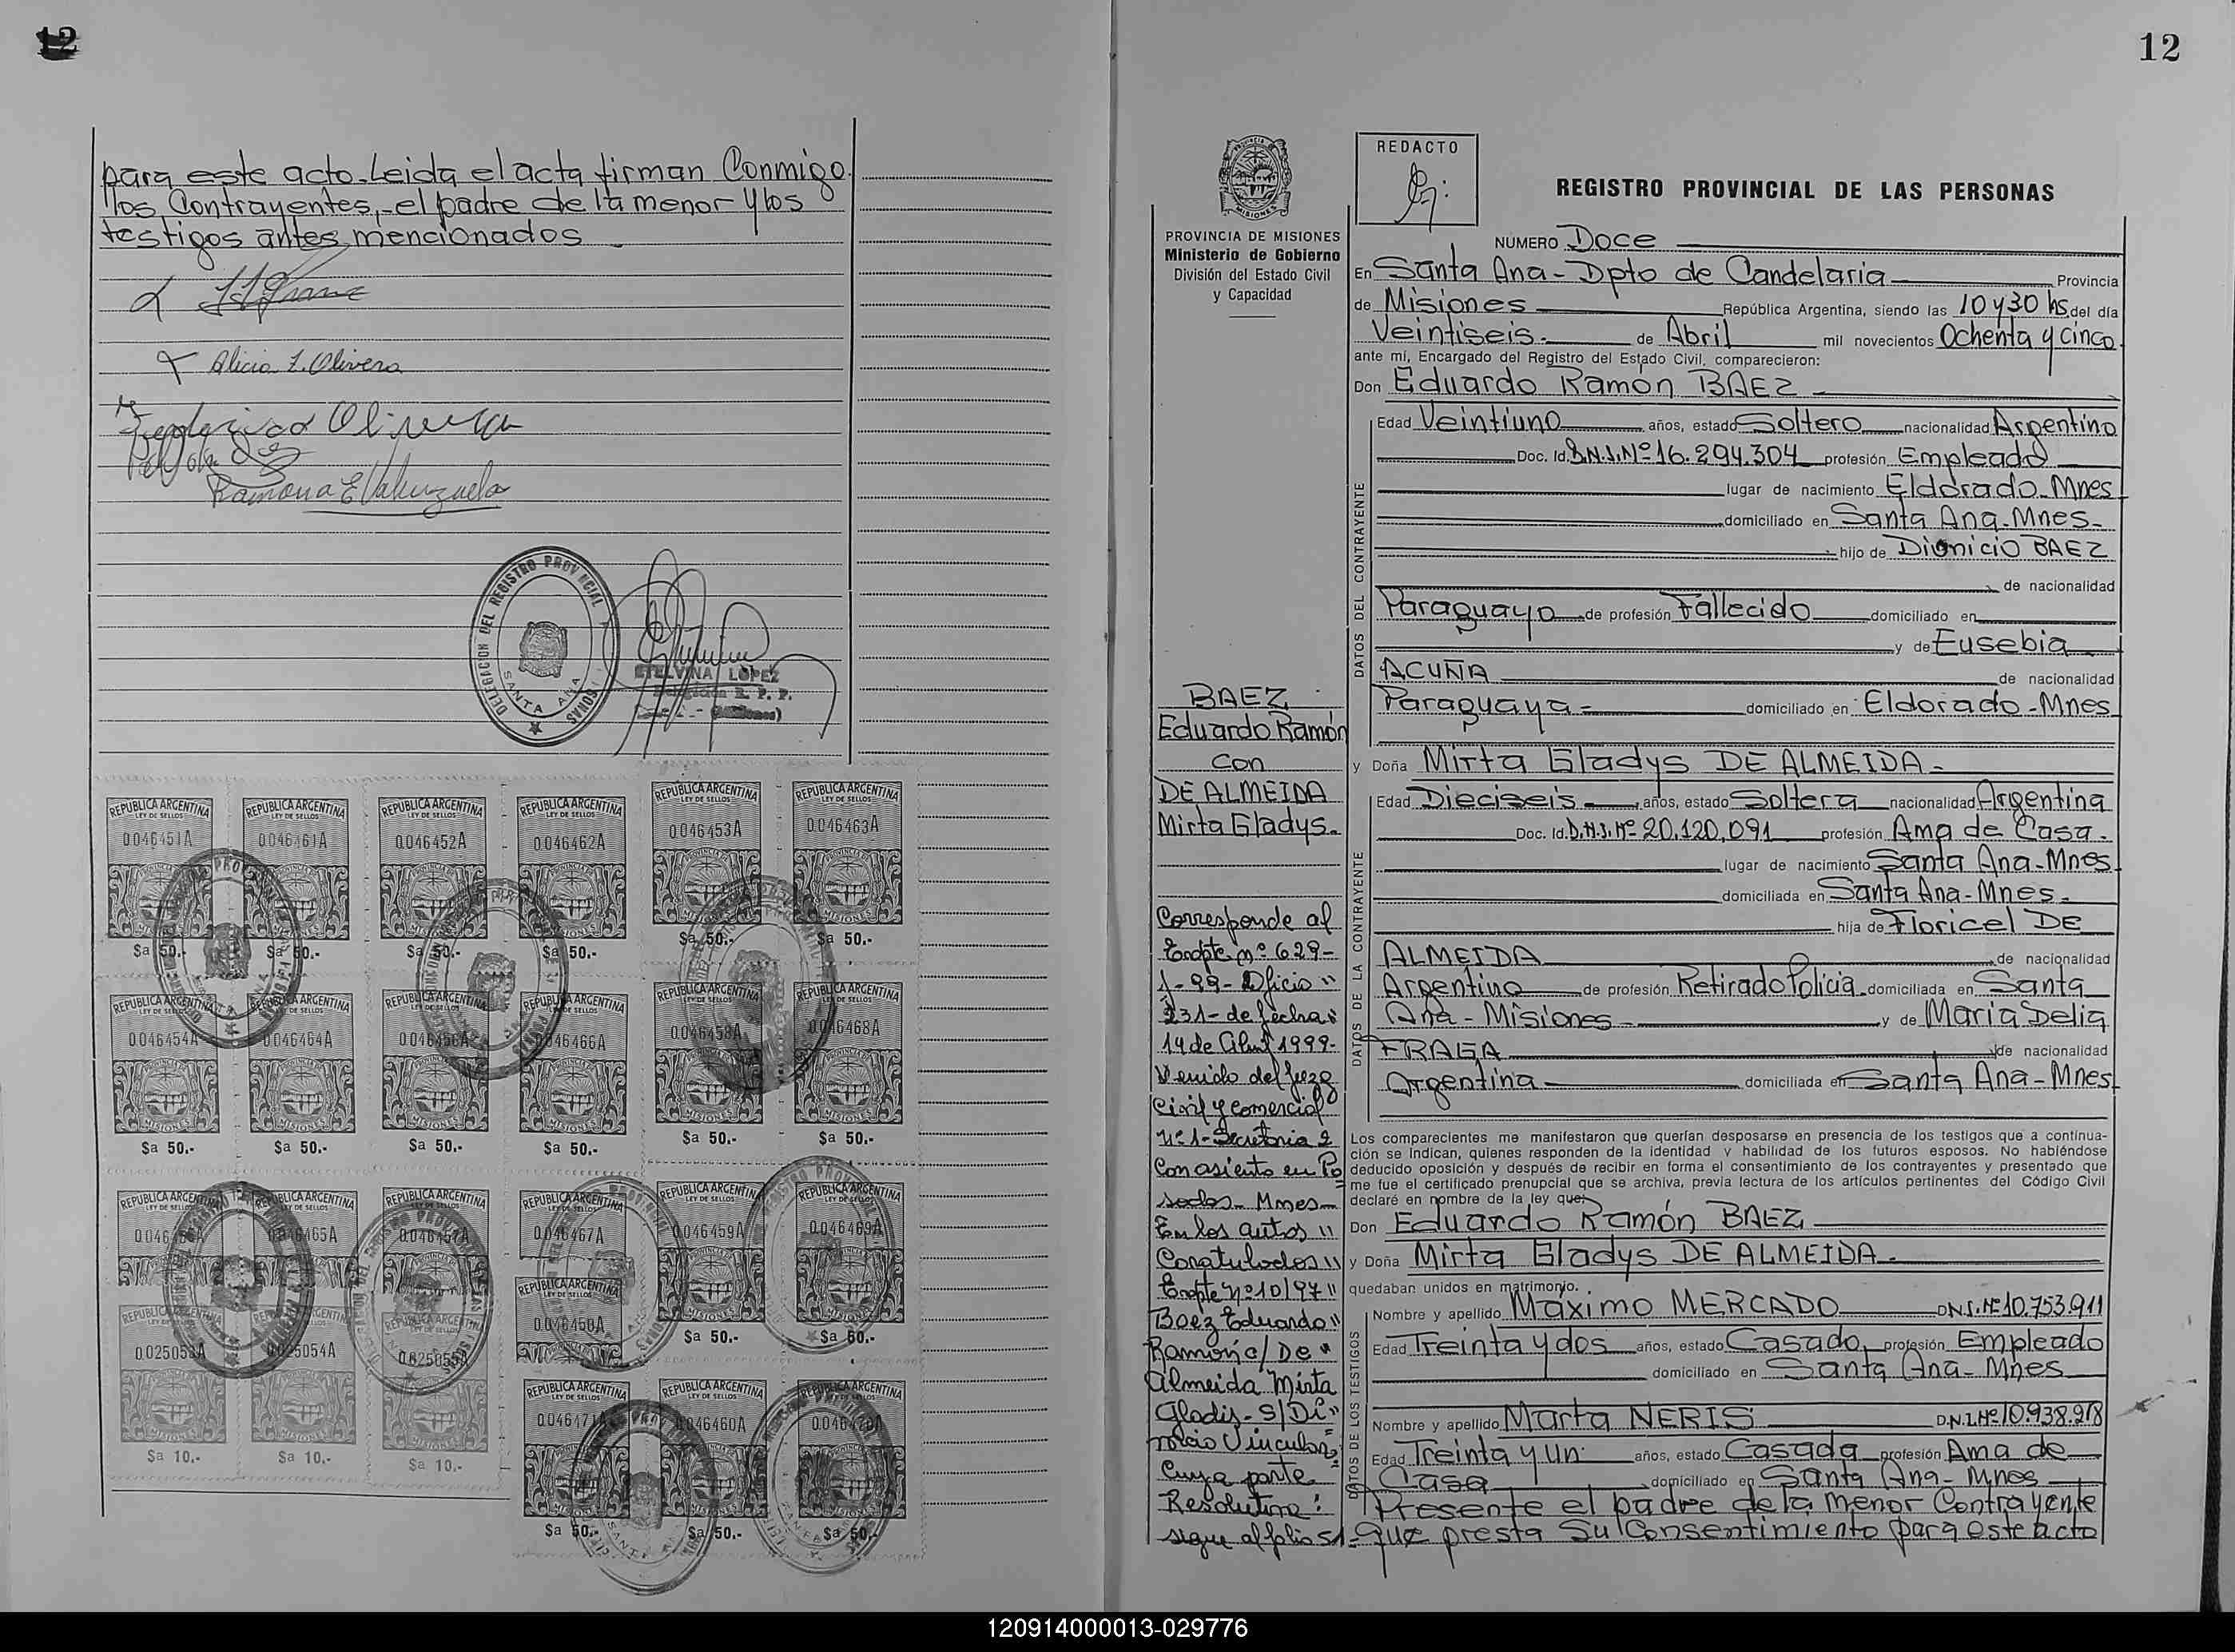 12
para este acto. Leida el acta firman Conmigo
los Contrayentes,-el padre de la menor y los
testigos antes mencionados
Alicia I. Olivera
Olivera
Ramona E Valenzuela
DELEGACION DEL REGISTRO PROVINCIAL
SANTA ANA
ETELVINA LOPEZ
REPUBLICA ARGENTINA REPUBLICA ARGENTINA REPUBLICA ARGENTINA REPUBLICA ARGENTINA REPUBLICA ARGENTINA REPUBLICA ARGENTINA
LEY DE SELLOS LEY DE SELLOS LEY DE SELLOS LEY DE SELLOS LEY DE SELLOS LEY DE SELLOS
0046451A 0046461A 0046452A 0046462A 0046453A 0046463A
MISIONES MISIONES MISIONES MISIONES MISIONES MISIONES
$a 50.- $a 50.- $a 50.- $a 50.- $a 50.- $a 50.-
REPUBLICA ARGENTINA REPUBLICA ARGENTINA REPUBLICA ARGENTINA REPUBLICA ARGENTINA REPUBLICA ARGENTINA REPUBLICA ARGENTINA
LEY DE SELLOS LEY DE SELLOS LEY DE SELLOS LEY DE SELLOS LEY DE SELLOS LEY DE SELLOS
0046454A 0046464A 0046466A 0046458A 0046468A
MISIONES MISIONES MISIONES MISIONES MISIONES MISIONES
$a 50.- $a 50.- $a 50.- $a 50.- $a 50.- $a 50.-
REPUBLICA ARGENTINA REPUBLICA ARGENTINA REPUBLICA ARGENTINA REPUBLICA ARGENTINA REPUBLICA ARGENTINA REPUBLICA ARGENTINA
0046465A 0046457A 0046467A 0046459A 0046469A
REPUBLICA ARGENTINA
LEY DE SELLOS
0046450A
$a 50.- $a 50.-
REPUBLICA ARGENTINA REPUBLICA ARGENTINA REPUBLICA ARGENTINA
0025053A 0025054A 0025055A
MISIONES MISIONES MISIONES
$a 10.- $a 10.- $a 10.-
REPUBLICA ARGENTINA REPUBLICA ARGENTINA REPUBLICA ARGENTINA
LEY DE SELLOS LEY DE SELLOS LEY DE SELLOS
0046471A 0046460A 0046470A
$a 50.- $a 50.- $a 50.-
12
PROVINCIA DE MISIONES
Ministerio de Gobierno
División del Estado Civil
y Capacidad
BAEZ
Eduardo Ramón
Con
DE ALMEIDA
Mirta Gladys.
Corresponde al
Expte nº 629-
1-99- Oficio "
231- de fecha
14 de Abril 1999-
Venido del Juzg
Civil y Comercial
Nº 1- Secretaria 2
Con asiento en Po
sadas- Mnes-
En los autos "
Caratulados "
Expte nº 10/97 "
Baez Eduardo "
Ramón c/ De "
Almeida Mirta
Gladis- S/Di"
vorcio Vincular
Cuya parte
Resolutiva:
sigue al folio 51-
REDACTO
REGISTRO PROVINCIAL DE LAS PERSONAS
NUMERO Doce
En Santa Ana - Dpto de Candelaria Provincia
de Misiones República Argentina, siendo las 10 y 30 hs. del día
Veintiseis. de Abril mil novecientos Ochenta y cinco
ante mí, Encargado del Registro del Estado Civil, comparecieron:
Don Eduardo Ramón BAEZ
DATOS DEL CONTRAYENTE
Edad Veintiuno años, estado Soltero nacionalidad Argentino
Doc. Id. D.N.I. Nº 16.294.304 profesión Empleado
lugar de nacimiento Eldorado-Mnes
domiciliado en Santa Ana-Mnes-
hijo de Dionicio BAEZ
de nacionalidad
Paraguayo de profesión Fallecido domiciliado en
y de Eusebia
ACUÑA de nacionalidad
Paraguaya- domiciliado en Eldorado-Mnes
y Doña Mirta Gladys DE ALMEIDA-
DATOS DE LA CONTRAYENTE
Edad Dieciseis años, estado Soltera nacionalidad Argentina
Doc. Id. D.N.I. Nº 20.120.091 profesión Ama de Casa.
lugar de nacimiento Santa Ana-Mnes
domiciliada en Santa Ana-Mnes-
hija de Floricel DE
ALMEIDA de nacionalidad
Argentino de profesión Retirado Policia domiciliada en Santa
Ana - Misiones y de Maria Delia
FRAGA de nacionalidad
Argentina domiciliada en Santa Ana-Mnes
Los comparecientes me manifestaron que querían desposarse en presencia de los testigos que a continua-
ción se indican, quienes responden de la identidad y habilidad de los futuros esposos. No habiéndose
deducido oposición y después de recibir en forma el consentimiento de los contrayentes y presentado que
me fue el certificado prenupcial que se archiva, previa lectura de los artículos pertinentes del Código Civil
declaré en nombre de la ley que:
Don Eduardo Ramón BAEZ
y Doña Mirta Gladys DE ALMEIDA-
quedaban unidos en matrimonio.
DATOS DE LOS TESTIGOS
Nombre y apellido Máximo MERCADO D.N.I. Nº 10.753.911
Edad Treinta y dos años, estado Casado profesión Empleado
domiciliado en Santa Ana-Mnes
Nombre y apellido Marta NERIS D.N.I. Nº 10.938.918
Edad Treinta y un años, estado Casada profesión Ama de
Casa domiciliado en Santa Ana- Mnes
Presente el padre de la menor Contrayente
que presta Su Consentimiento para este acto
120914000013-029776